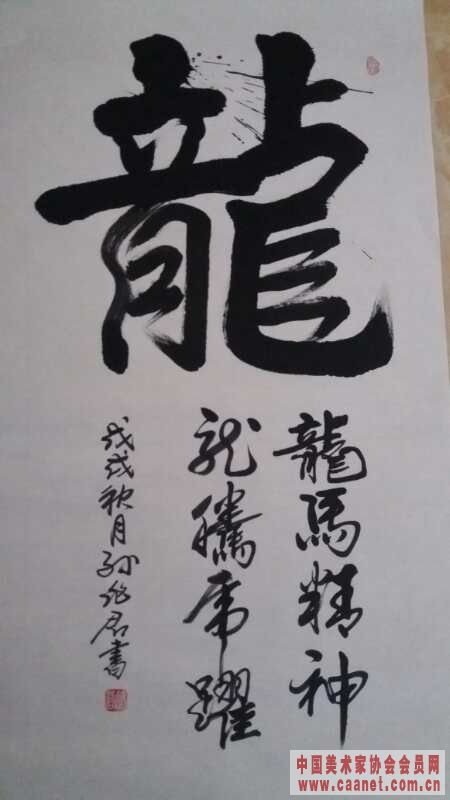 龍
龍馬精神
龙騰虎躍
戊戌秋月孙兆君書
中国美术家协会会员网
www.caanet.com.cn